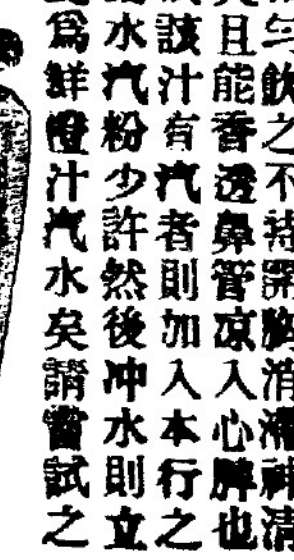 勻飲之不特開胸消滯神清
且能香透鼻管凉入心脾也
該汁有汽者則加入本行之
水汽粉少許然後冲水則立
爲鮮橙汁汽水矣請嘗試之